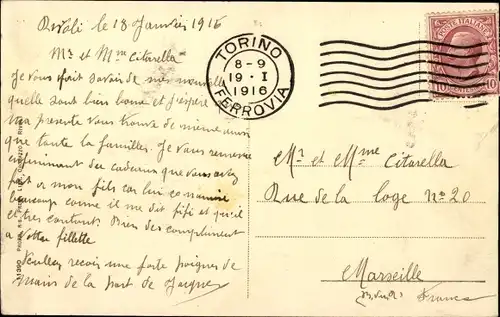 Rivoli le 18 Janvier 1916
Mr et Mme Citarella
Je vous fait savoir de mes nouvelle
quelle sont bien bone et j'espère
ma presente vous trouve de meme ainsi
que toute la familles. Je vous remercie
infiniment des cadeaux que vous avez
fait a mon fils car lui
beaucoup come il me dit fifi et qu'il
et tres contant. Bien des compliment
a Votre fillette
Veulles recois une forte poignes de
mains de la part de Jacques
TORINO
8-9
19·I
1916
FERROVIA
POSTE ITALIANE
10 10
Mr et Mme Citarella
Rue de la loge No 20
Marseille
France
11390